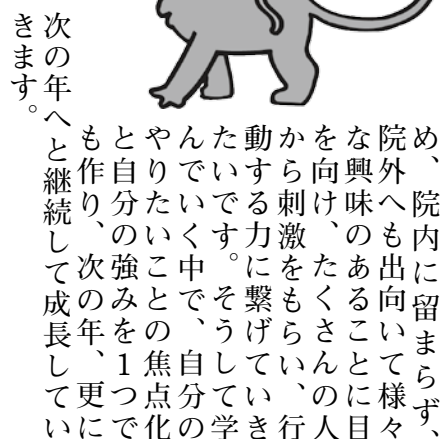 め、院内に留まらず、
院外へも出向いて様々
な興味のあることに目
を向け、たくさんの人
から刺激をもらい、行
動する力に繋げていき
たいです。そうして学
んでいく中で、自分の
やりたいことの焦点化
と自分の強みを1つで
も作り、次の年、更に
次の年へと継続して成長してい
きます。